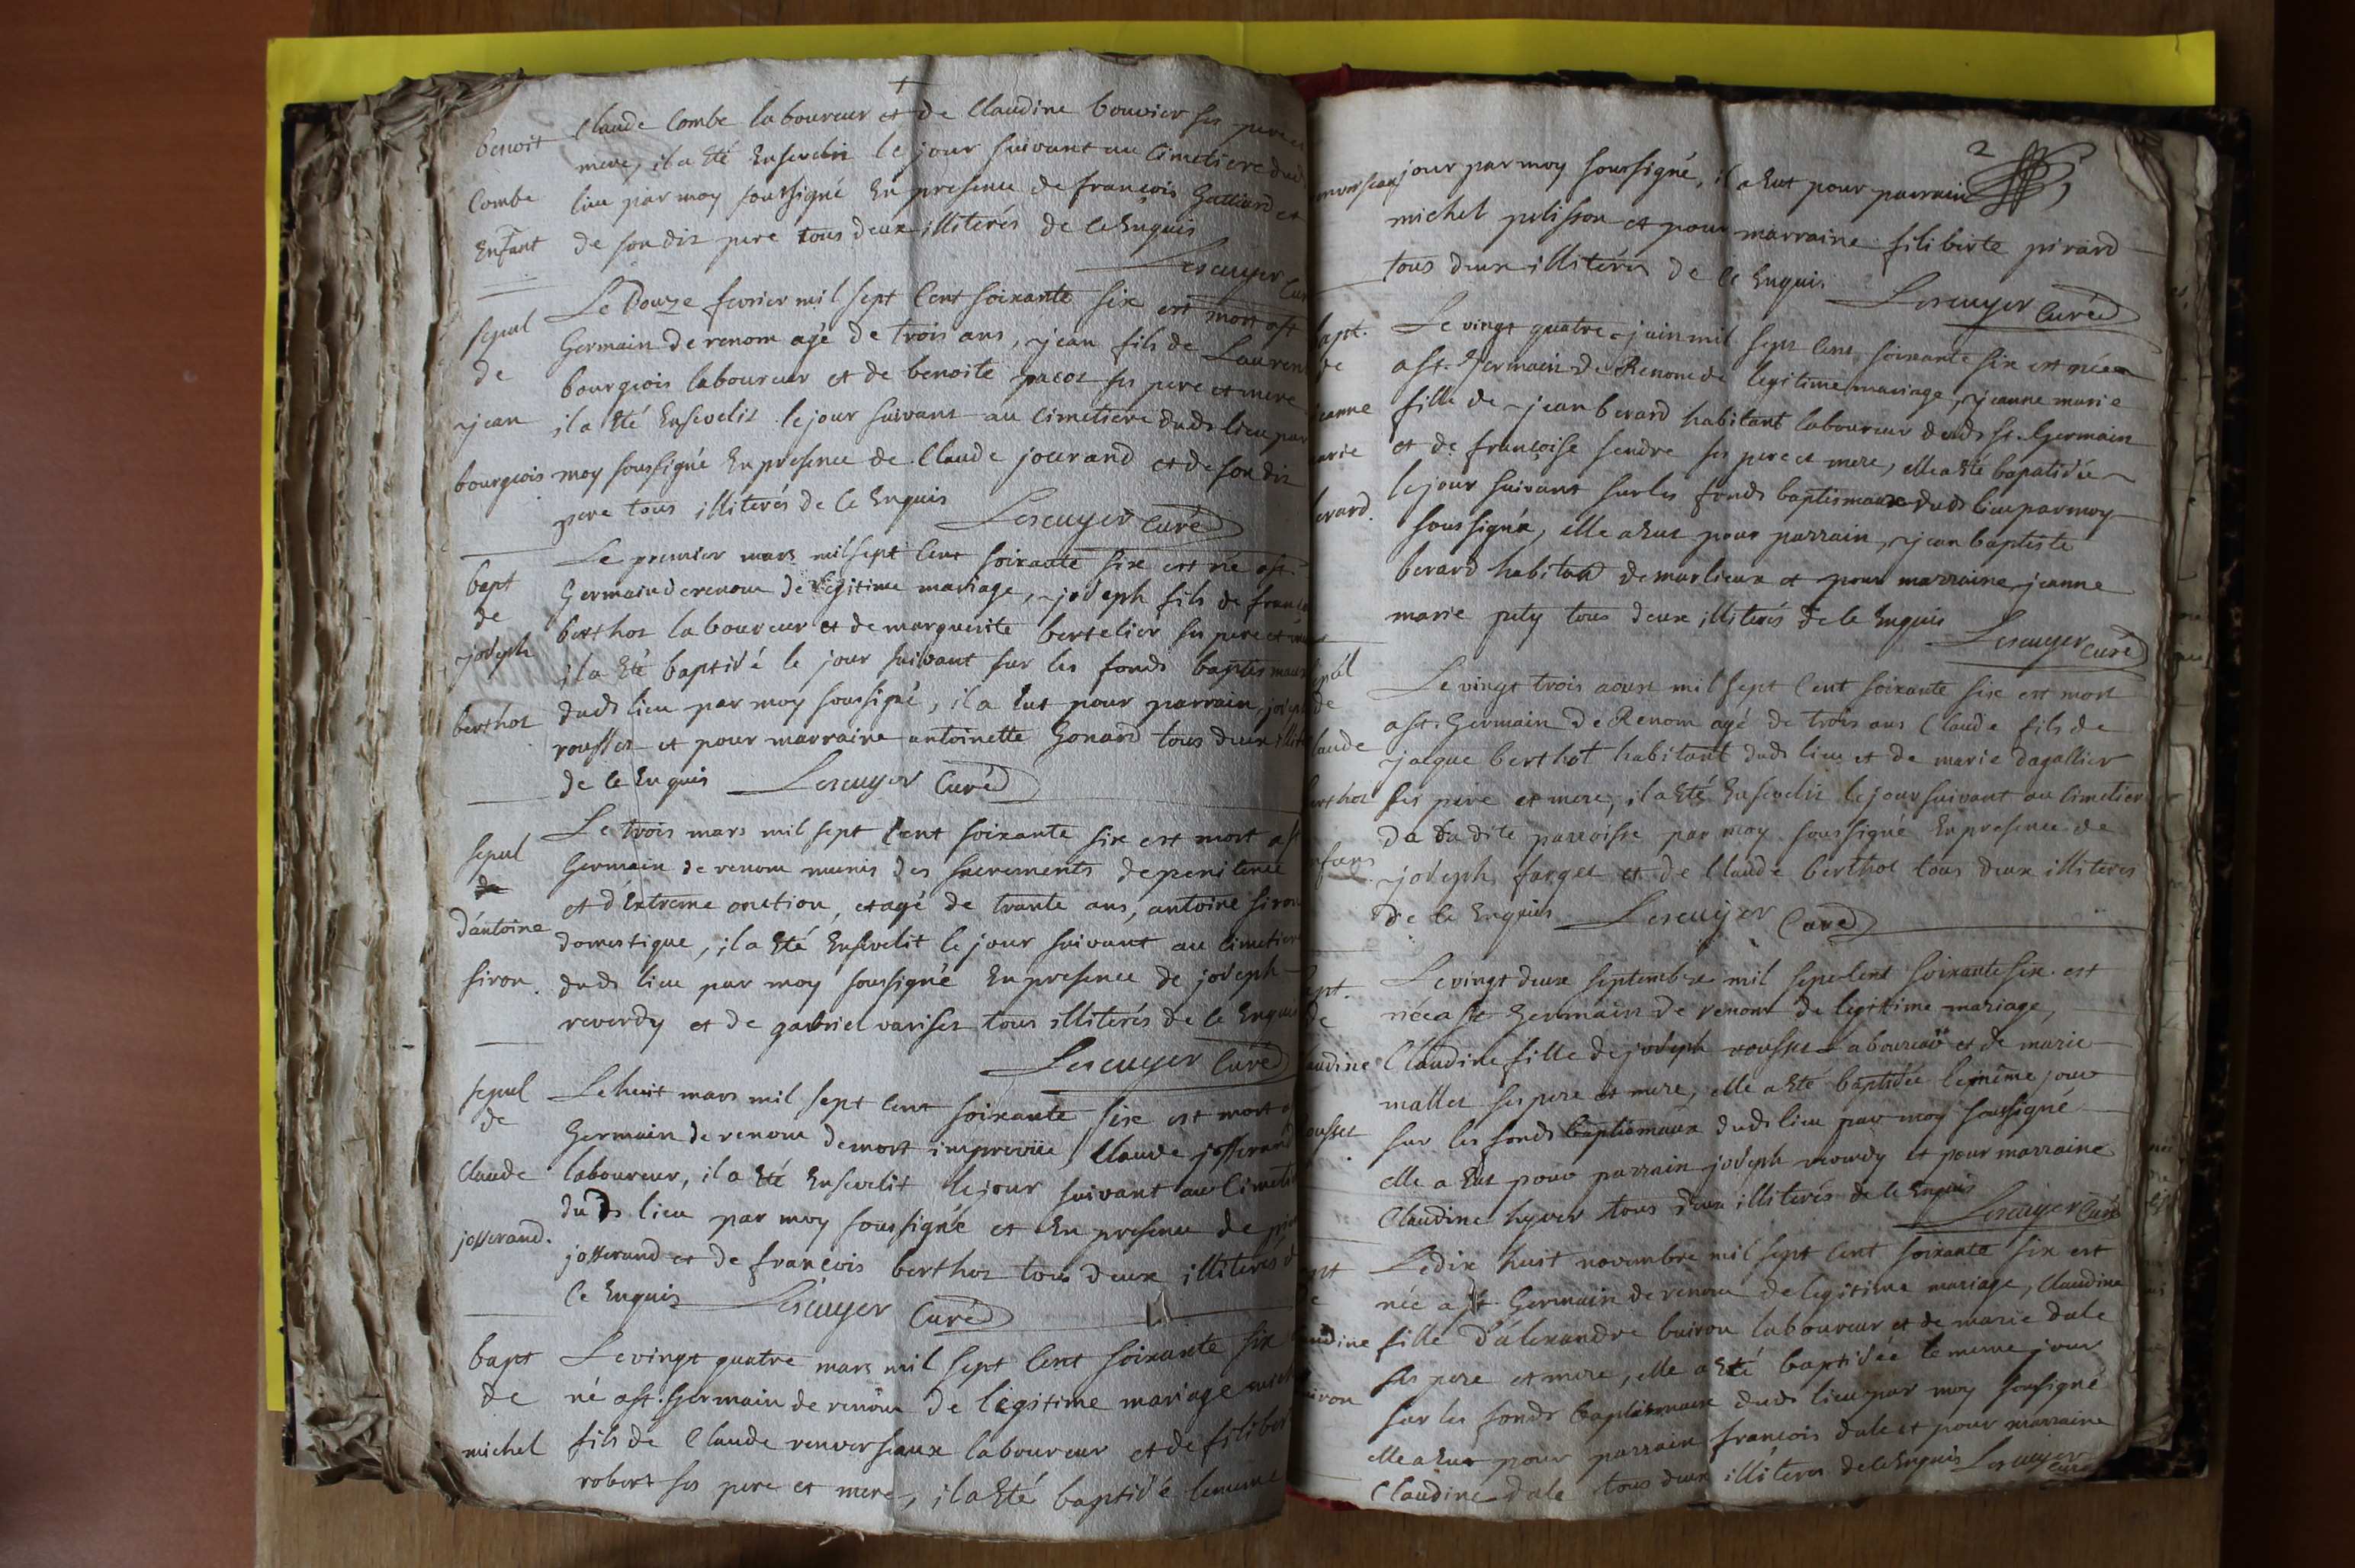 benoit
Combe
Enfant
Claude Combe laboureur et de Claudine bouvier ses pere et
mere, il a Eté Ensevelis le jour suivant au Cimetiere dud.
lieu par moy soussigné En presence de françois Galliard et
de son dit pere tous deux illiterés de ce Enquis
Lescuyer Curé
sepul
de
jean
bourgeois
Le Douze fevrier mil sept Cent soixante six est mort a st
Germain de renom agé de trois ans, jean fils de Laurent
bourgeois laboureur et de benoite pacot ses pere et mere
il a Eté Ensevelis le jour suivant au Cimetiere dudt lieu par
moy soussigné En presence de Claude jourand et de son dit
pere tous illiterés de ce Enquis
Lescuyer Curé
bapt
de
joseph
berthot
Le premier mars mil sept Cent soixante six est né a st
Germain de renom de legitime mariage, joseph fils de franc
berthot laboureur et de marguerite bertelier ses pere et mere
il a Eté baptisé le jour suivant sur les fonds baptismaux
dudt lieu par moy soussigné, il a Eut pour parrain, joseph
rousset et pour marraine antoinette Gonard tous deux illite
de ce Enquis Lescuyer Curé
sepul
de
d'antoine
siron.
Le trois mars mil sept Cent soixante six est mort a st
Germain de renom munis des sacrements de penitence
et d'Extreme onction, et agé de trante ans, antoine siron
domestique, il a Eté Ensevelit le jour suivant au Cimetiere
dudt lieu par moy soussigné En presence de joseph
reverdy et de gabriel variset tous illiterés de ce Enquis
Lescuyer Curé
sepul
de
Claude
josserand.
Le huit mars mil sept Cent soixante six est mort a
Germain de renom de mort imprevüe Claude josserand
laboureur, il a Eté Ensevelit le jour suivant au Cimeti
dudt lieu par moy soussigné et En presence de
josserand et de françois berthot tous deux illiterés d
Ce Enquis Lescuyer Curé
bapt
de
michel
Le vingt quatre mars mil sept Cent soixante six
né a st. Germain de renom de legitime mariage
fils de Claude renverseaux laboureur et de filiber
robert ses pere et mere, il a Eté baptisé le meme
2
jour par moy soussigné, il a Eut pour parrain
michel pelisson et pour marraine filiberte pirard
tous deux illiterés de Ce Enquis
Lescuyer Curé
bapt.
de
jeanne
marie
berard.
Le vingt quatre juin mil sept Cent soixante six est née
a st. Germain de Renom de legitime mariage, jeanne marie
fille de jean berard habitant laboureur dudt st. Germain
et de françoise sendre ses pere et mere, elle a Eté bapatisée
le jour suivant sur les fonds baptismaux dudt lieu par moy
soussigné, elle a Eut pour parrain, jean baptiste
berard habitant de marlieux et pour marraine jeanne
marie pety tous deux illiterés de Ce Enquis
Lescuyer Curé
sepul
de
Claude
berthot
Enfans
Le vingt trois aoust mil sept Cent soixante six est mort
a st. Germain de Renom agé de trois ans Claude fils de
jacque berthot habitant dudt lieu et de marie dagallier
ses pere et mere, il a Eté Ensevelis le jour suivant au Cimetier
da du dite paroisse par moy soussigné En presence de
joseph farget et de Claude berthot tous deux illiteres
de Ce Enquis Lescuyer Curé
bapt.
de
Claudine
rousset
Le vingt deux septembre mil sept Cent soixante six est
née a st Germain de renom de legitime mariage,
Claudine fille de joseph rousset Laboureur et de marie
mallet ses pere et mere, elle a Eté baptisée le même jour
sur les fonds baptismaux dudt lieu par moy soussigné
elle a Eut pour parrain joseph reverdy et pour marraine
Claudine hyver tous deux illiterés de Ce Enquis
Lescuyer Curé
bapt
de
Claudine
buiron
Le dix huit novembre mil sept Cent soixante six est
née a st Germain de renom de legitime mariage, Claudine
fille d'alexandre buiron laboureur et de marie dale
ses pere et mere, elle a Eté baptisée le meme jour
sur les fonds baptismaux dudt lieu par moy soussigné
elle a Eut pour parrain francois dale et pour marraine
Claudine dale tous deux illiteres de Ce Enquis Lescuyer
Curé